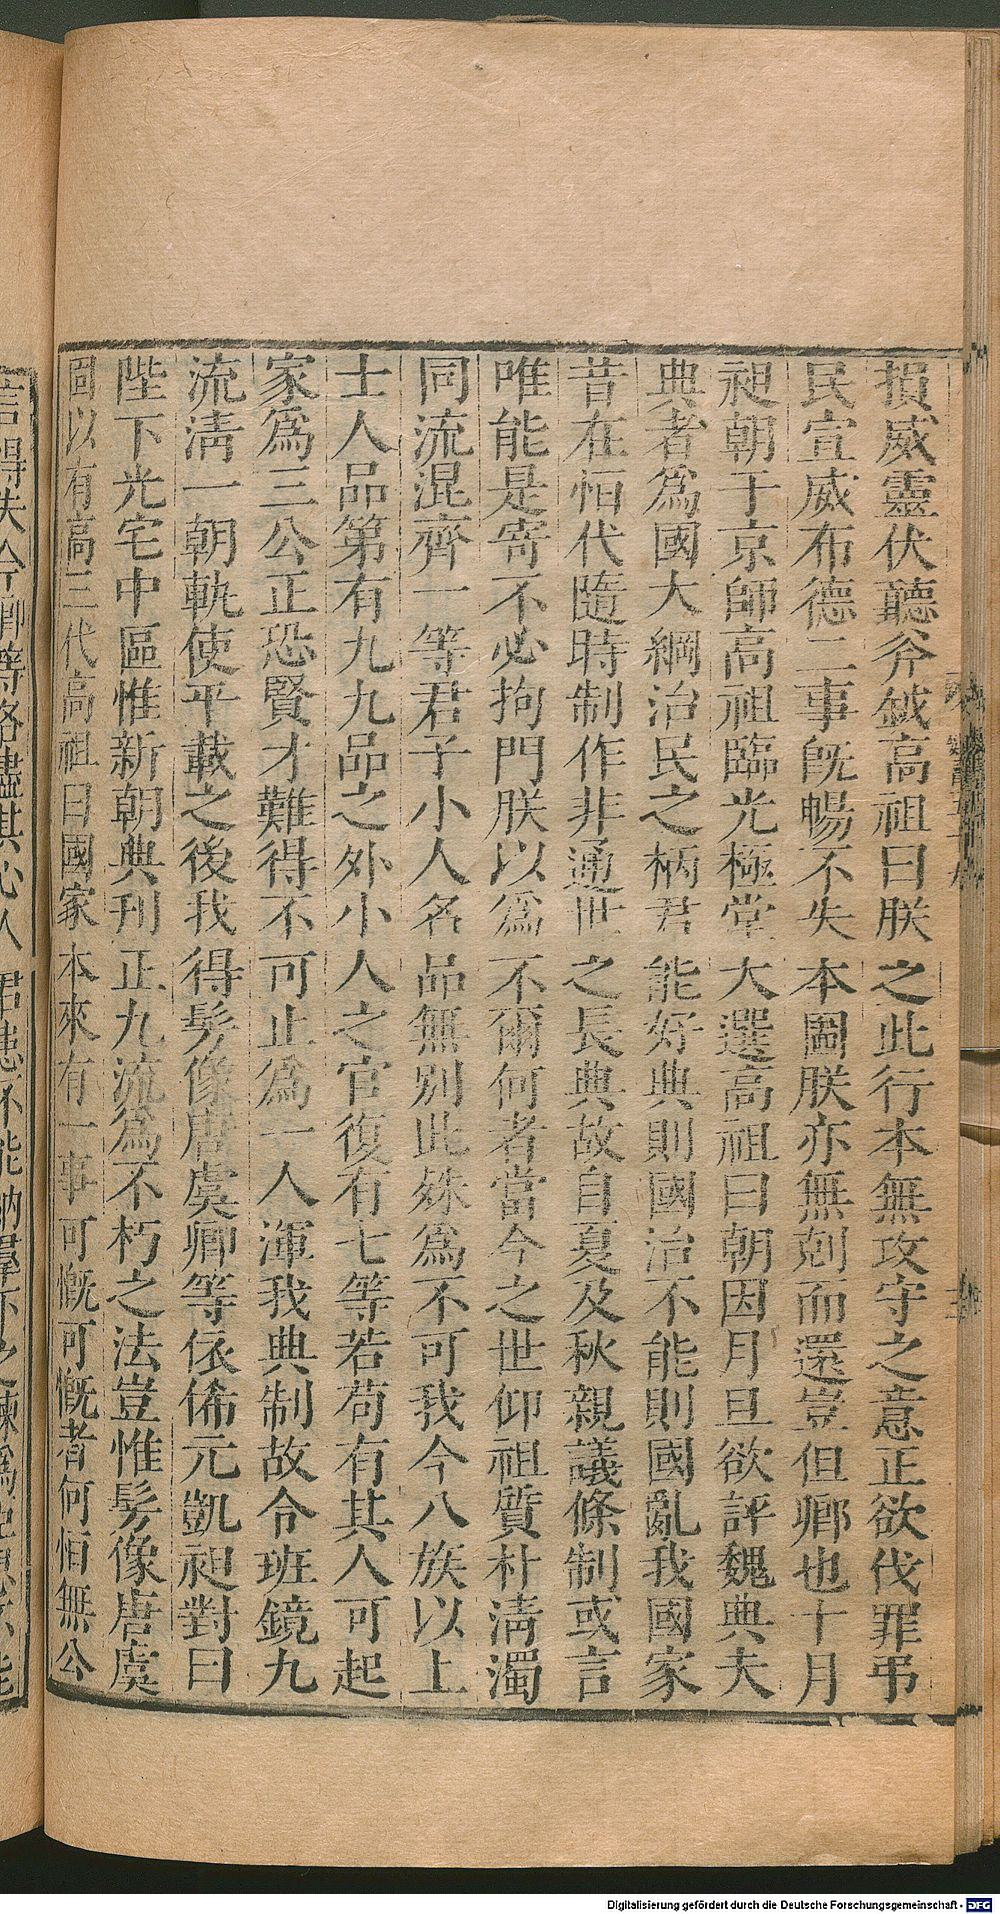 損威靈伏聽斧鉞高祖曰朕之此行本無攻守之意正欲伐罪弔
民宣威布德二事旣暢不失本圖朕亦無剋而還豈但卿也十月
昶朝于京師高祖臨光極堂大選高祖曰朝因月旦欲評魏典夫
典者爲國大綱治民之柄君能好典則國治不能則國亂我國家
昔在恒代隨時制作非通世之長典故自夏及秋親議條制或言
唯能是寄不必拘門朕以爲不爾何者當今之世仰祖質朴淸濁
同流混齊一等君子小人名品無別此殊爲不可我今八族以上
士人品第有九九品之外小人之官復有七等若苟有其人可起
家爲三公正恐賢才難得不可止爲一人渾我典制故令班鏡九
流淸一朝軌使平載之後我得髣像唐虞卿等依俙元凱昶對曰
陛下光宅中區惟新朝典刊正九流爲不朽之法豈惟髣像唐虞
固以有高三代高祖曰國家本來有一事可慨可慨者何恒無公
言得失今卿等各盡其心人君患不能納羣下之諫爲臣患不能
Digitalisierung gefördert durch die Deutsche Forschungsgemeinschaft - DFG